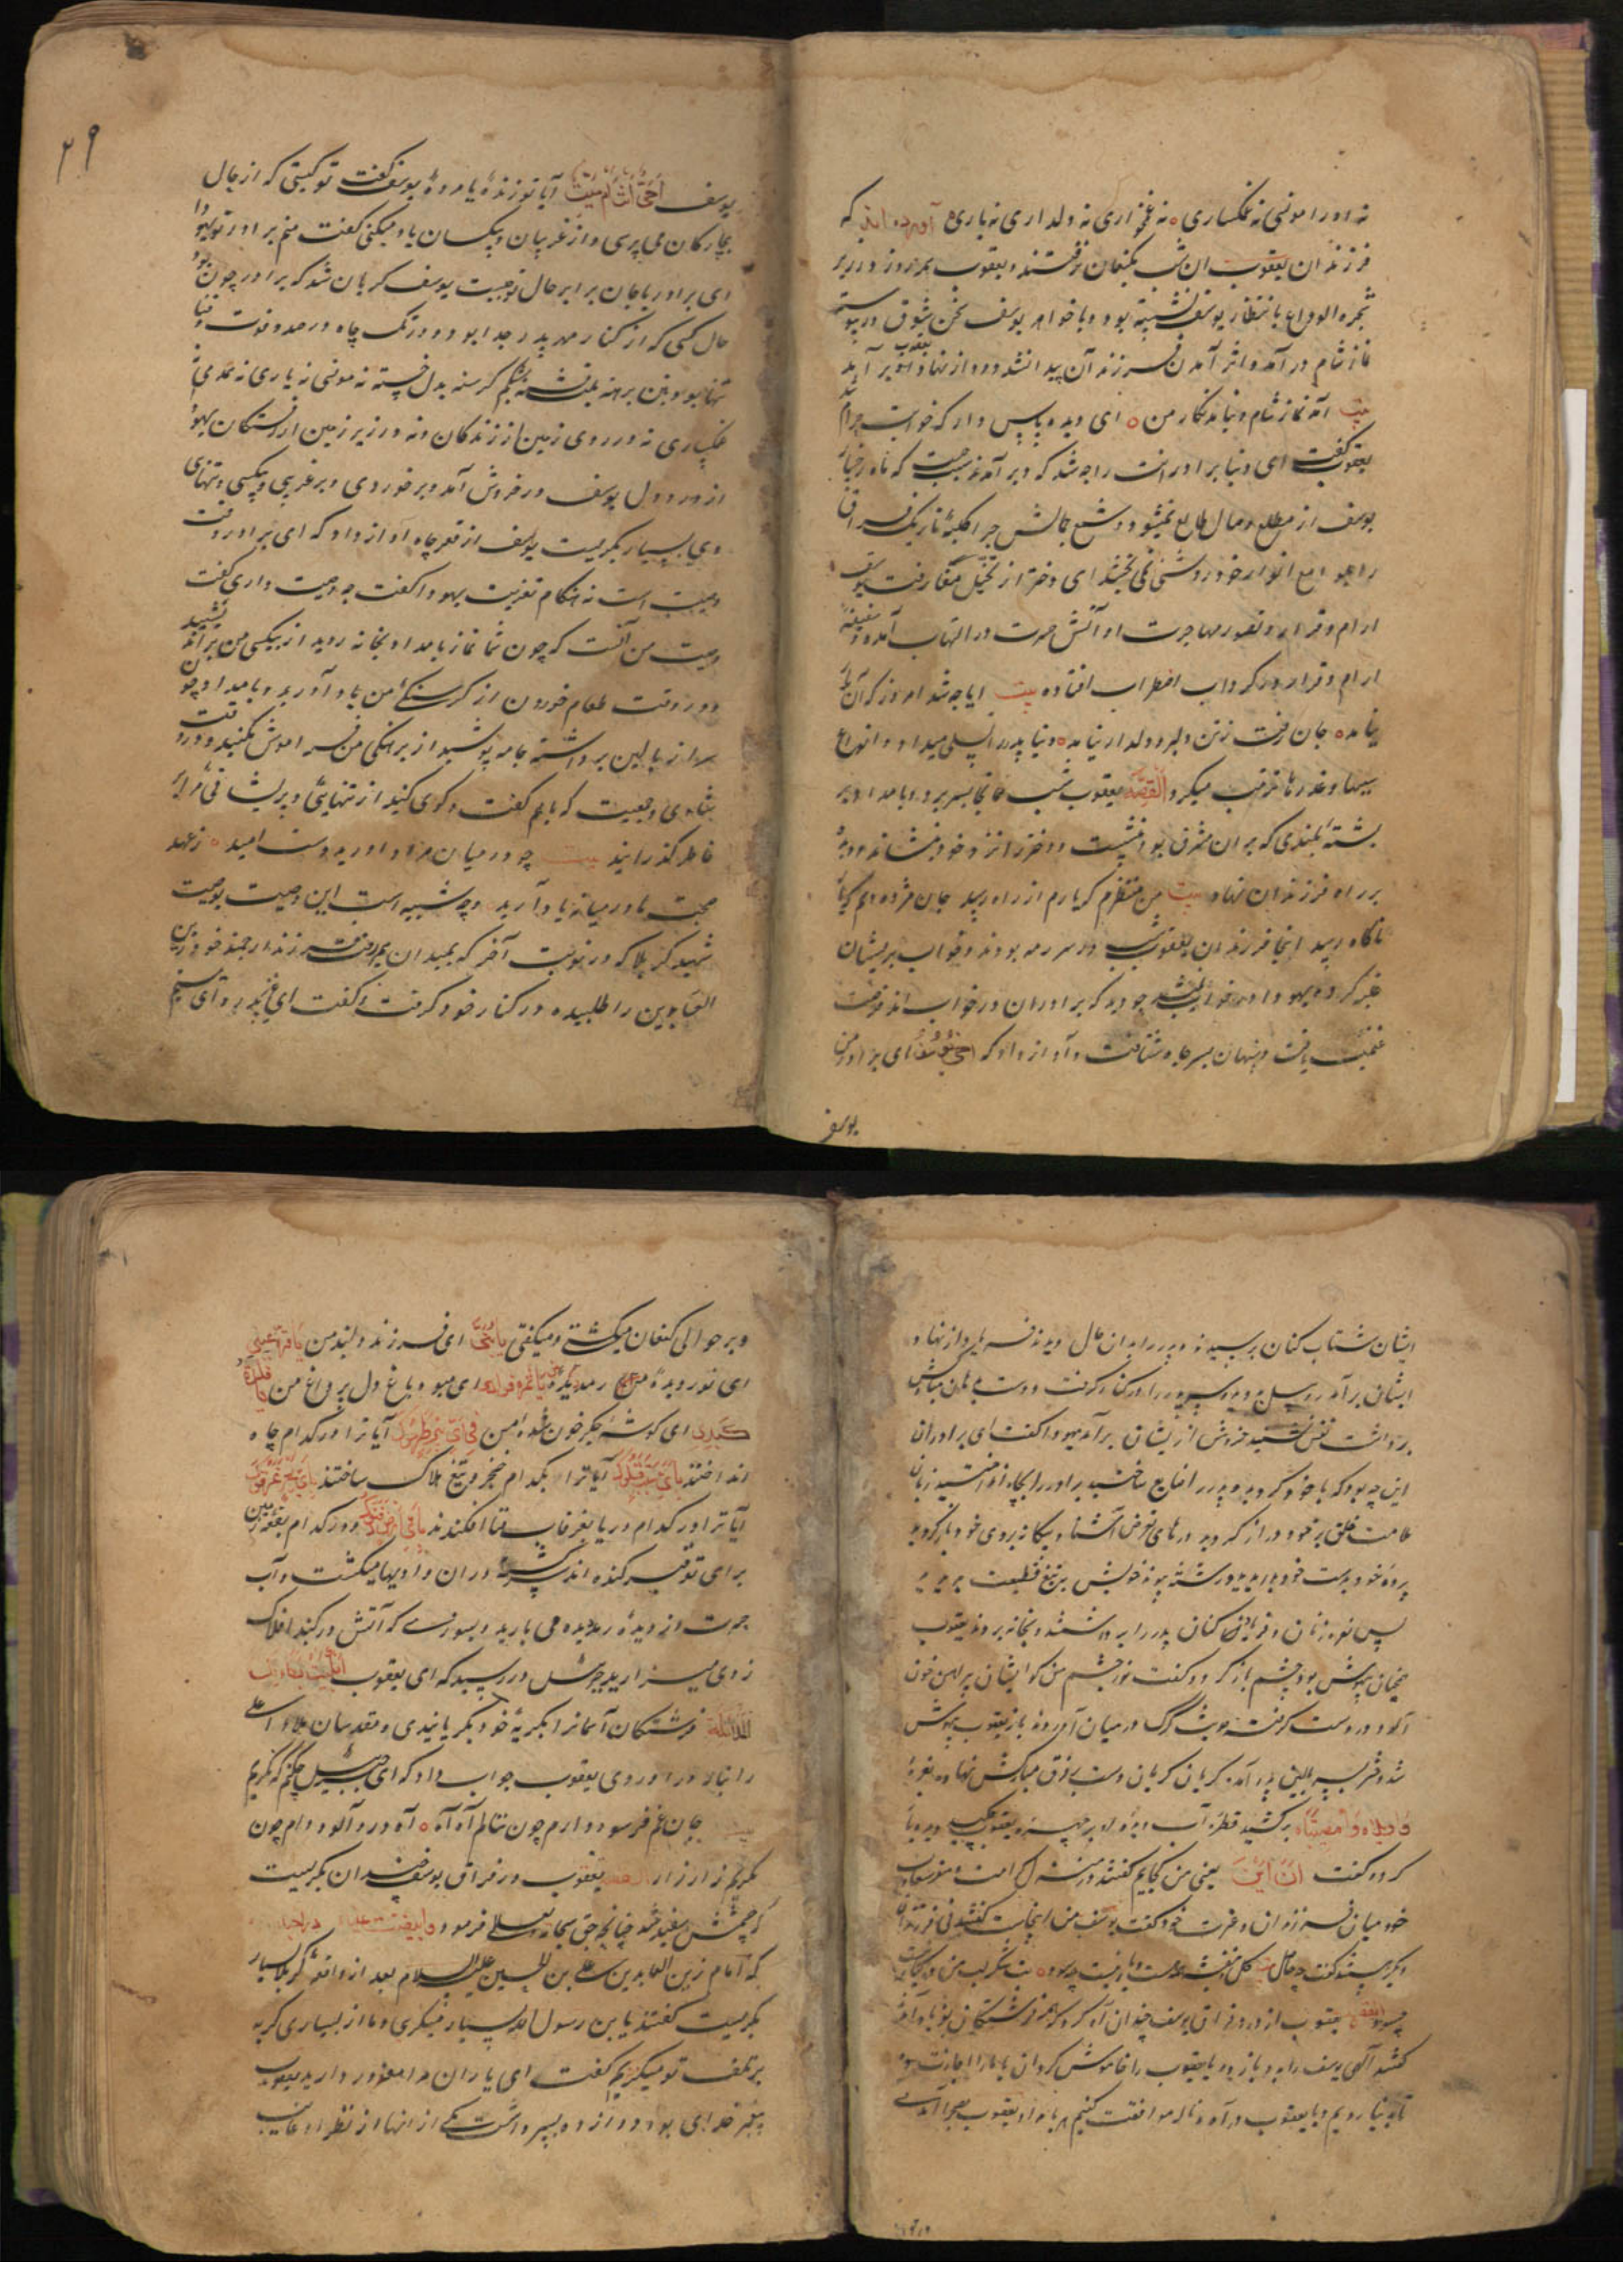 نه او را مونسی نه غمکساری نه غمخواری نه ولداری نه یاری آورده اند که
فرزندان یعقوب ان شب بکنعان نرفتند و یعقوب همه روز در زیر
شجره الوداع بانتظار یوسف نشسته بود و با خواهر یوسف سخن شوق در پیوسته
نماز شام در آمد و اثر آمدن فرزندان پیدا نشد دود از نهاد یعقوب بر آمد
بیت آمد نماز شام و نیامد نکار من ای دیده پاس دار که خوابت حرام
یعقوب کفت ای دنیا برادرانت را چه شد که دیر آمدند سبب چیست که ماه رخسار
یوسف از مطلع وصال طالع نمیشود و شمع جمالش چرا کلبهٔ تاریک فراق
را بلوامع انوار خود روشنی نمی بخشد ای دختر از تخیل مفارقت یوسف
ارام و قرار و تصور مهاجرت او آتش حسرت در التهاب آمده و سفینهٔ
ارام و قرار در کرداب اضطراب افتاده بیت ایا چه شد امروز که آن
نیامد جان رفت ز تن دلبر و دلدار نیامد دنیا پدر را تسلی میداد و انواع
سببها و عذرها ترتیب میکرد القصه یعقوب شب همانجا بسر برد و بامداد بر
پشتهٔ بلندی که بر ان مشرف بود بنشست و دختر را نزد خود بنشاند و دیده
بر راه فرزندان نهاد بیت من منتظرم که یارم از راه رسد جان مژده دهم
ناکاه رسد اینجا فرزندان یعقوب شب در سر رمه بودند و خواب بریشان
غلبه کرد و یهودا در خواب نشد چو دید که برادران در خواب اند فرصت
غنیمت یافت و پنهان بسر چاه شتافت و آواز داد که اخی یوسف ای برادر من
یوسف
۲۹
یوسف احی انت ام میت آیا تو زندهٔ یا مردهٔ یوسف کفت تو کیستی که از حال
بیچارکان می پرسی و از غریبان و بیکسان یاد میکنی کفت منم برادر تو یهودا
ای برادر با جان برابر حال تو چیست یوسف کریان شد که برادر چون بود
حال کسی که از کنار مهر پدر جدا بود و در تک چاه در صدد فوت و فنا
تنها بود و بتن برهنه بلب تشنه بشکم کرسنه بدل خسته نه مونسی نه یاری نه همدمی
غمکساری نه در روی زمین از زندکان و نه در زیر زمین از رستکان یهودا
از درد دل یوسف در خروش آمد و بر خوردی و بر غریبی و بیکسی و تنهای
وی بسیار بکریست یوسف از قعر چاه آواز داد که ای برادر وقت
وصیت است نه هنکام تعزیت یهودا کفت چه وصیت داری کفت
وصیت من آنست که چون شما نماز بامداد بخانه روید از بیکسی من بر اندیشید
و در وقت طعام خوردن از کرسنکی من یاد آورید و بامداد چون
سر از بالین برداشته جامه پوشید از برهنکی من فراموش مکنید و در وقت
شادی و جمعیت که باهم کفت و کوی کنید از تنهایی و پریشانی من
خاطر کذرانید بیت چو در میان مراد اورید دست امید ز عهد
صحبت ما در میانه یاد آرید و چه شبیه است این وصیت بوصیت
شهید کربلا که در نوبت آخر که بمیدان میرفت فرزند ارجمند خود زین
العابدین را طلبیده در کنار خود کرفت و کفت ای
ایشان شتاب کنان برسیدند و پدر را بدان حال دیدند فریاد از نهاد
ایشان بر آمد روبیل بدوید و سر پدر را در کنار کرفت و دست بدهان مبارکش
برداشت نفس نشنید خروش از ایشان بر آمد یهودا کفت ای برادران
این چه بود که با خود کردید و پدر را ضایع ساختید برادر را بچاه انداختید زبان
ملامت خلق بر خود دراز کردید درهای تعرض آشنا و بیکانه بروی خود باز کردید
پردهٔ خود بدست خود دریدید و رشتهٔ پیوند خویش به تیغ قطیعت بریدید
پس نعره زنان و فریاد کنان پدر را برداشتند و بخانه بردند یعقوب
همچنان بیهوش بود چشم باز کرد و کفت نور چشم من کو ایشان پیراهن خون
آلود در دست کرفته حدیث کرک در میان آوردند باز یعقوب بیهوش
شد دختر بر بالین پدر آمد کریان کریان دست بر فرق مبارکش نهاد و نعرهٔ
واویلاه وامصیبتاه برکشید قطره آب دیده او بر چهره یعقوب چکید دیده باز
کرد و کفت انا این یعنی من کجایم کفتند در منزل کرامت و مقر سعادت
خود میان فرزندان و عترت خود کفت یوسف من اینجاست کفتند نی فرزندان
بکریستند کفت چه حاصل
یعقوب از درد فراق یوسف چندان آه کرد که همه فرشتکان بفریاد آمدند
کفتند آلهی یوسف را بدو باز ده یا یعقوب را خاموش کردان یا ما را اجازت ده
تا بدنیا رویم و با یعقوب در آه و ناله موافقت کنیم بامداد یعقوب بصحرا آمدی
و بر حوالی کنعان میکشتی و میکفتی یا بنی ای فرزند دلبند من یا قرة عینی
ای نور دیدهٔ من یا ثمرة فوادی ای میوه باغ دل پر داغ من یا فلذة
کبدی ای کوشهٔ جکر خون شدهٔ من فی ای بئر طرحوک آیا ترا در کدام چاه
انداختند بای سیف قتلوک آیا ترا بکدام خنجر و تیغ هلاک ساختند بای بحر غرقوک
آیا ترا در کدام دریا بغرقاب فنا افکندند بای ارض دفنوک و در کدام بقعه زمین
برای تو قبر کنده اند سرکشته در ان وادیها میکشت و آب
حسرت از دیدهٔ رمدیده می بارید و بسوزی که آتش در کنبد افلاک
زدی میزارید جبرئیل در رسید که ای یعقوب ابکیت ببکائک
الملائکة فرشتکان آسمانرا بکریهٔ خود بکریانیدی و مقدسان ملاء اعلی
را بناله در اوردی یعقوب جواب داد که ای جبرئیل چکنم که نکریم
بیت جان غم فرسوده دارم چون ننالم آه آه آه درد آلوده دارم چون
نکریم زار زار القصه یعقوب در فراق یوسف چندان بکریست
که چشمش سفید شد چنانچه حق سبحانه و تعالی فرمود وابیضت عیناه
که امام زین العابدین علی بن الحسین علیه السلام بعد از واقعه کربلا بسیار
بکریست کفتند یا بن رسول الله بسیار میکری و ما از بسیاری کریه
بر تلف تو میترسیم کفت ای یاران مرا معذور دارید یعقوب
پیغمبر خدای بود دوازده پسر داشت یکی از انها از نظر او غایب